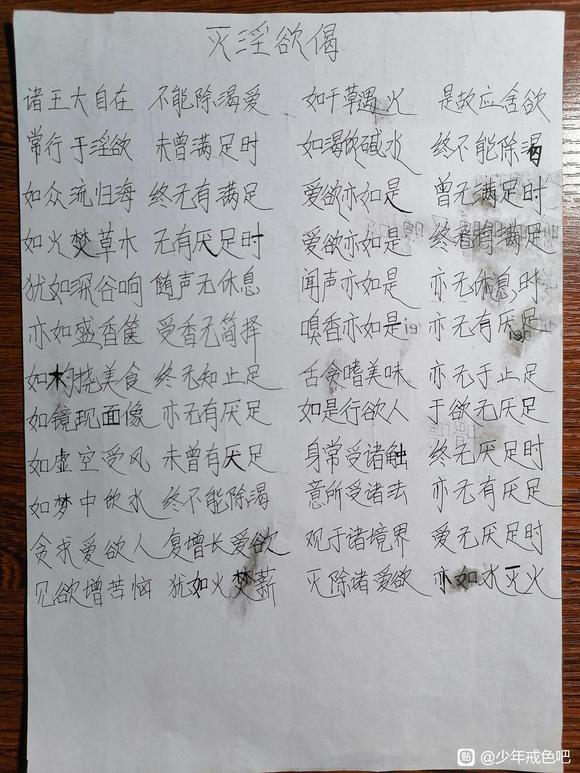 灭淫欲偈
诸王大自在 不能除渴爱 如干草遇火 是故应舍欲
常行于淫欲 未曾满足时 如渴饮碱水 终不能除渴
如众流归海 终无有满足 爱欲亦如是 曾无满足时
如火焚草木 无有厌足时 爱欲亦如是 终者满足
犹如深谷响 随声无休息 闻声亦如是 亦无休息时
亦如盛香箧 受香无简择 嗅香亦如是 亦无有厌足
如杓挠美食 终无知止足 舌贪嗜美味 亦无于止足
如镜现面像 亦无有厌足 如是行欲人 于欲无厌足
如虚空受风 未曾有厌足 身常受诸触 终无厌足时
如梦中饮水 终不能除渴 意所受诸法 亦无有厌足
贪求爱欲人 复增长爱欲 观于诸境界 爱无厌足时
见欲增苦恼 犹如火焚薪 灭除诸爱欲 亦如水灭火
贴 @少年戒色吧